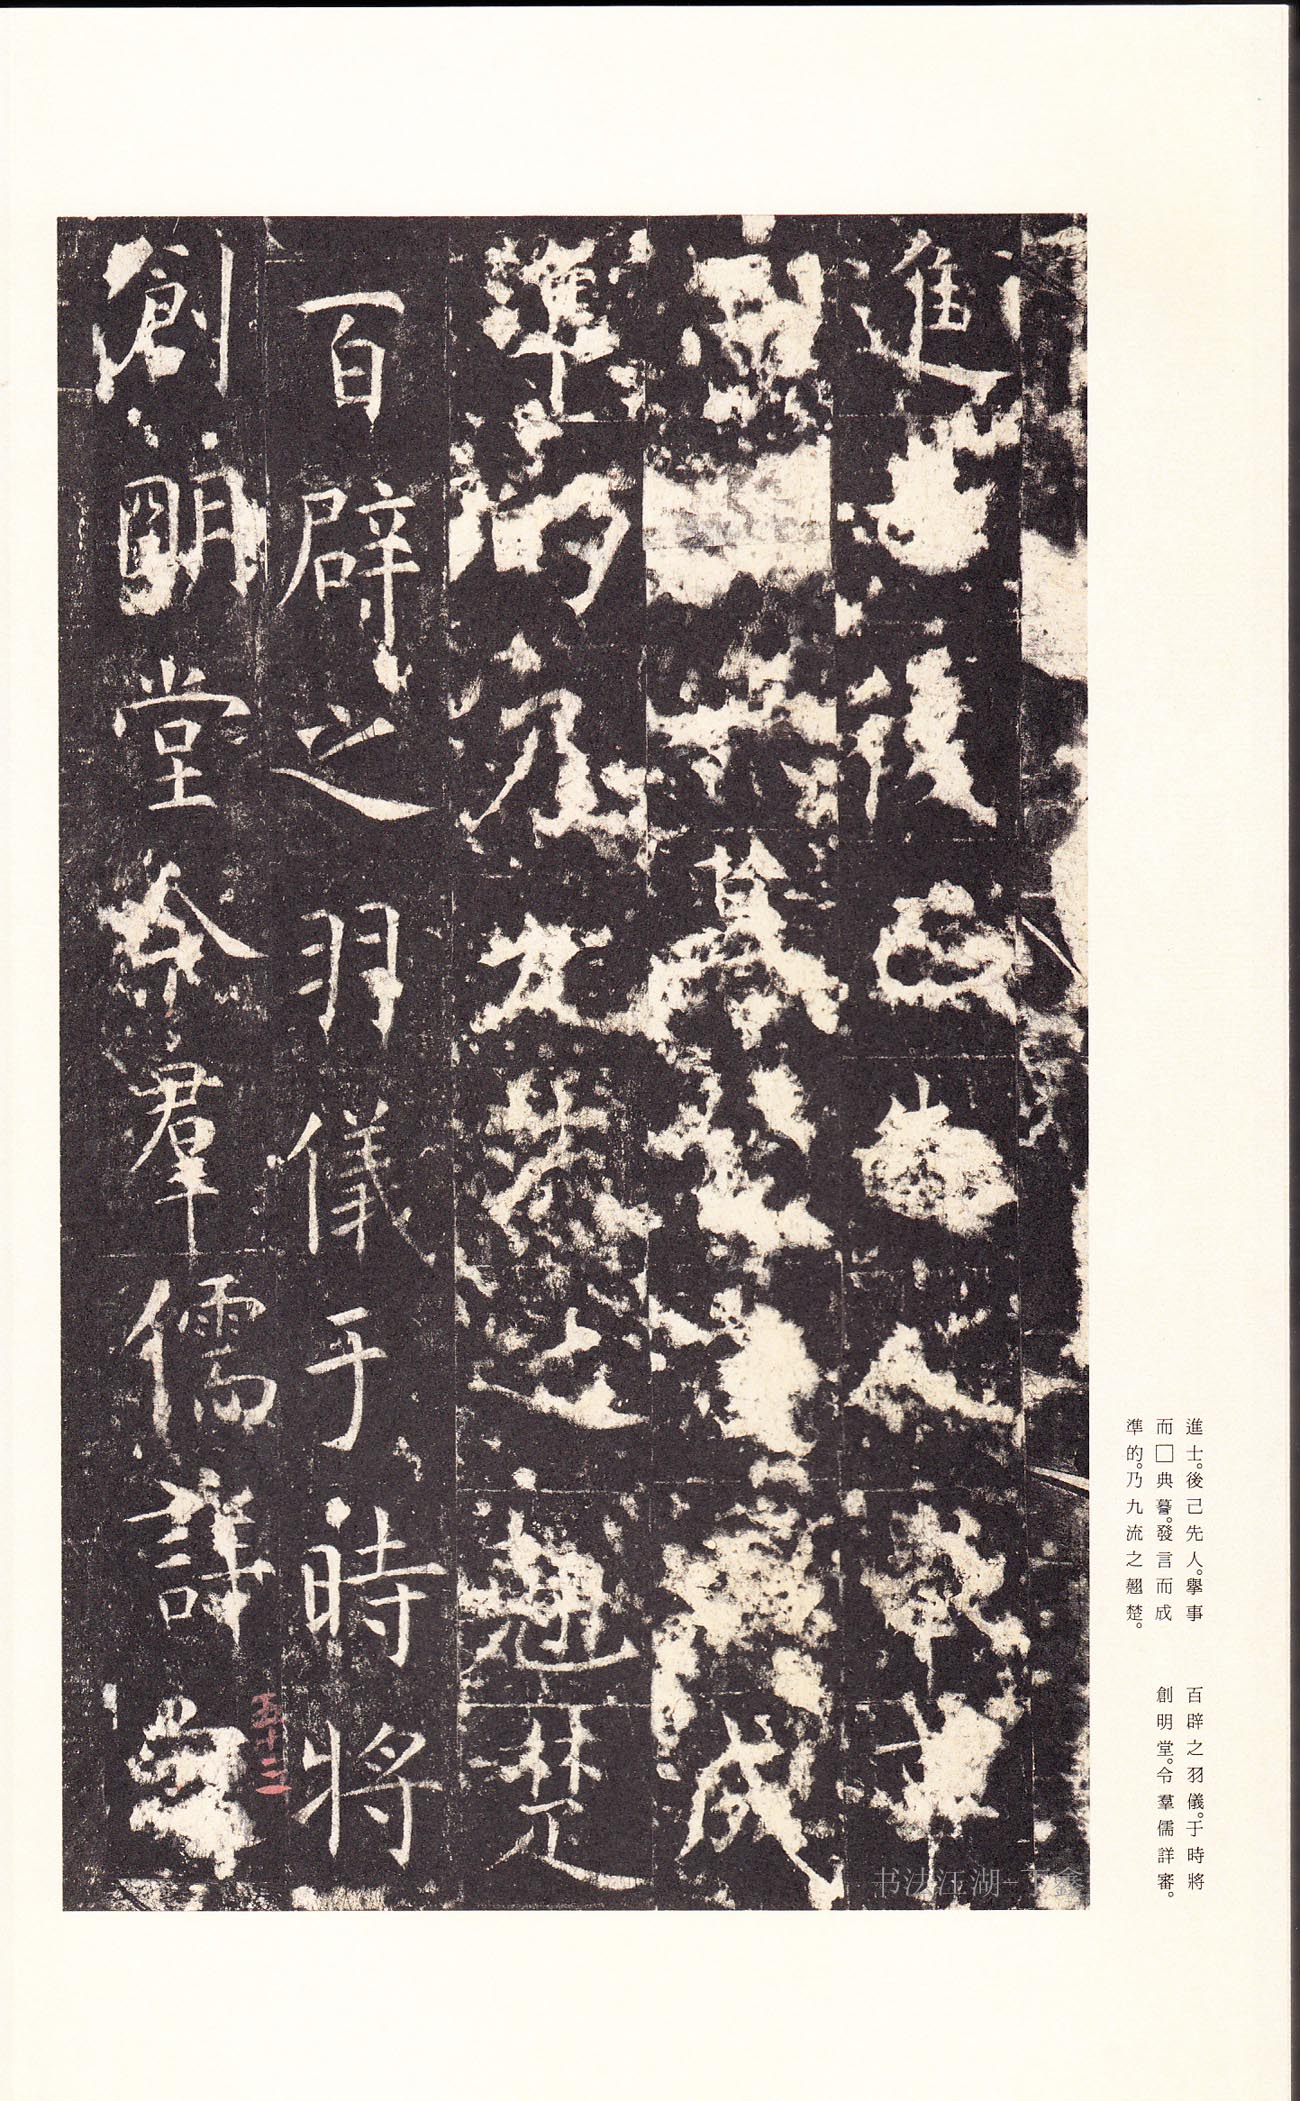 進士後己先人舉事
而典謩發言而成
準的乃九流之翹楚
百辟之羽儀于時將
創明堂令羣儒詳審
五十二
進士。後己先人。舉事
而□典謩。發言而成
準的。乃九流之翹楚。
百辟之羽儀。于時將
創明堂。令羣儒詳審。
书法江湖-丁鑫